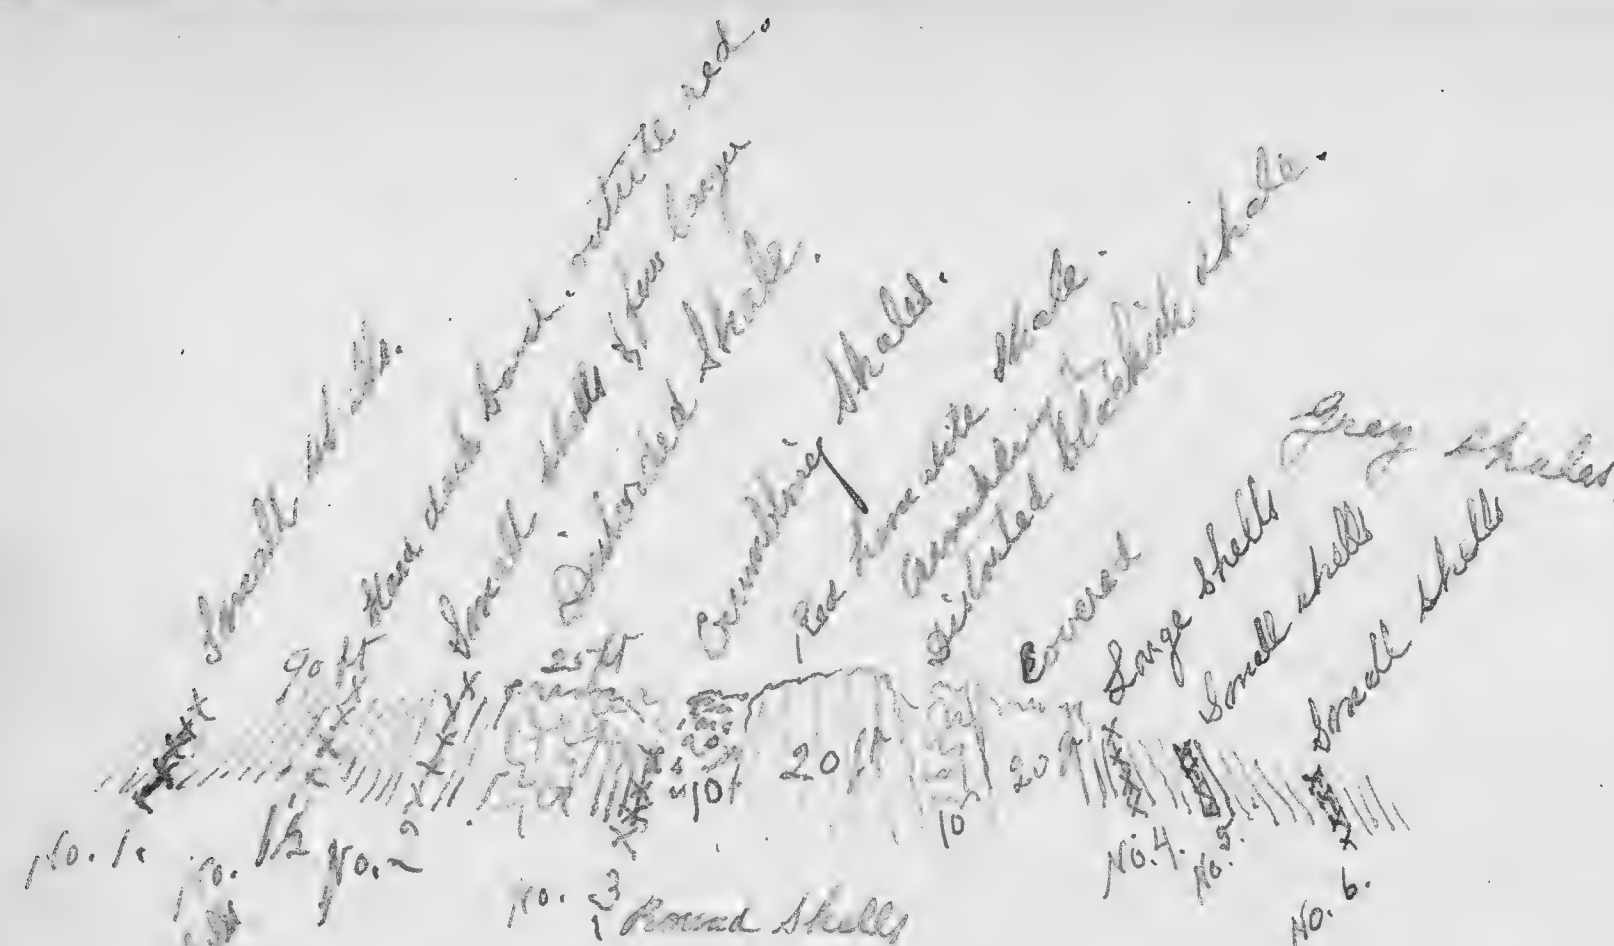 Small shells.
Hard dark band. white red.
Small shells & few larger
Distorted Shale.
Crumbling Shales.
Red shale.
Crumbling
Distorted blackish shale.
Covered
Large shells
Small shells
Small shells
Grey shales
90 ft
25 ft
20
10
20 ft
10
20 ft
No. 1.
No. 1½
No. 2
No. 3
Round Shells
No. 4.
No. 5.
No. 6.